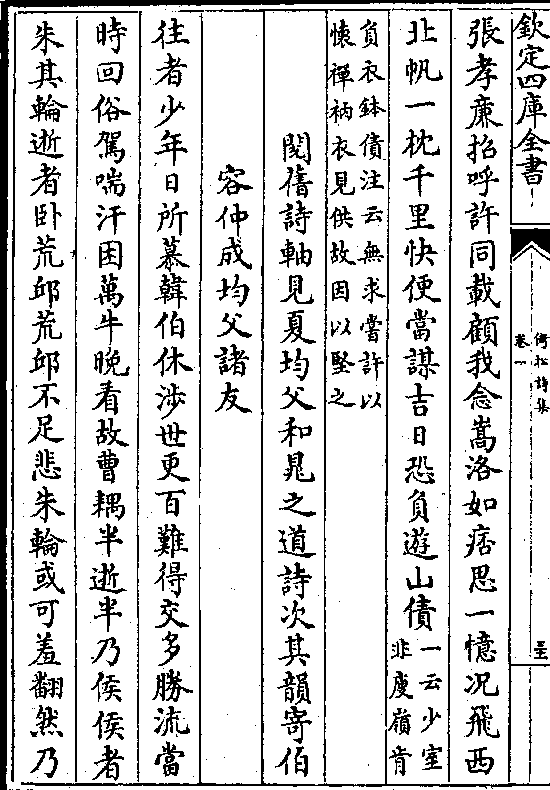 欽定四庫全書
倚松詩集
卷一
張孝廉招呼許同載顧我念嵩洛如痞思一憶况飛西
北帆一枕千里快便當謀吉日恐負遊山債一云少室
非庾嶺肯
負衣鉢債注云無求嘗許以
懐禪衲衣見供故因以堅之
閱舊詩軸見夏均父和晁之道詩次其韻寄伯
容仲成均父諸友
往者少年日所慕韓伯休渉世更百難得交多勝流當
時回俗駕喘汗困萬牛晩看故曹耦半逝半乃侯侯者
朱其輪逝者卧荒邱荒邱不足悲朱輪或可羞翻然乃